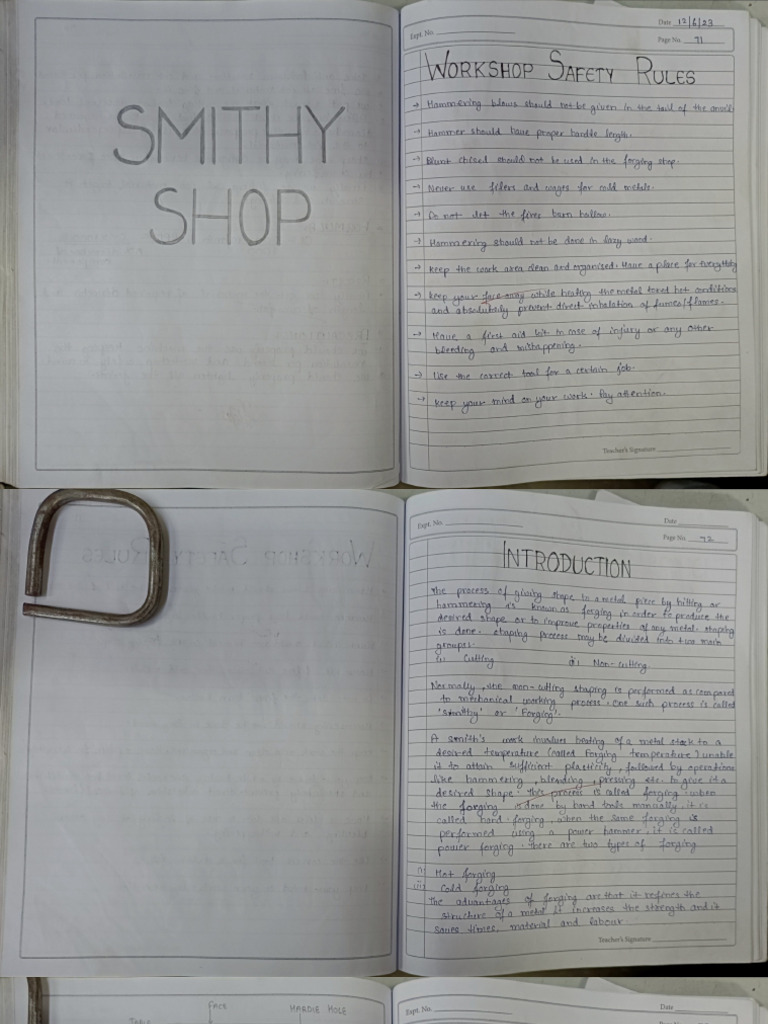 SMITHY
SHOP
Expt. No.
Date 12/6/23
Page No. 71
WORKSHOP SAFETY RULES
→ Hammering blows should not be given in the tail of the anvil
→ Hammer should have proper handle length.
→ Blunt chisel should not be used in the forging shop.
→ Never use fullers and for mild metals.
→ Do not let the fires burn hollow.
→ Hammering should not be done in lazy mood.
→ Keep the work area clean and organised. Have a place for everything
→ Keep your face away while heating the metal to red hot conditions
and absolutely prevent direct inhalation of fumes/flames.
→ Have a first aid kit in case of injury or any other
bleeding and mishappening.
→ Use the correct tool for a certain job.
→ Keep your mind on your work. Pay attention.
Teacher's Signature
Expt. No.
Date
Page No. 72
INTRODUCTION
The process of giving shape to a metal piece by hitting or
hammering is known as forging in order to produce the
desired shape or to improve properties of any metal. shaping
is done. shaping process may be divided into two main
groups:
Cutting Non-cutting
Normally, the non-cutting shaping is performed as compared
to mechanical working process. One such process is called
'smithy' or 'Forging'.
A smith's work involves heating of a metal stock to a
desired temperature (called Forging temperature) unable
it to attain sufficient plasticity, followed by operations
like hammering, bending, pressing etc. to give it a
desired shape. This process is called forging. when
the forging is done by hand tools manually, it is
called hand-forging, when the same forging is
performed using a power hammer, it is called
power forging. There are two types of forging
i) Hot forging
ii) Cold forging
The advantages of forging are that it refines the
structure of a metal it increases the strength and it
saves times, material and labour.
Teacher's Signature
FACE
HARDIE HOLE
TABLE
Expt. No.
Date